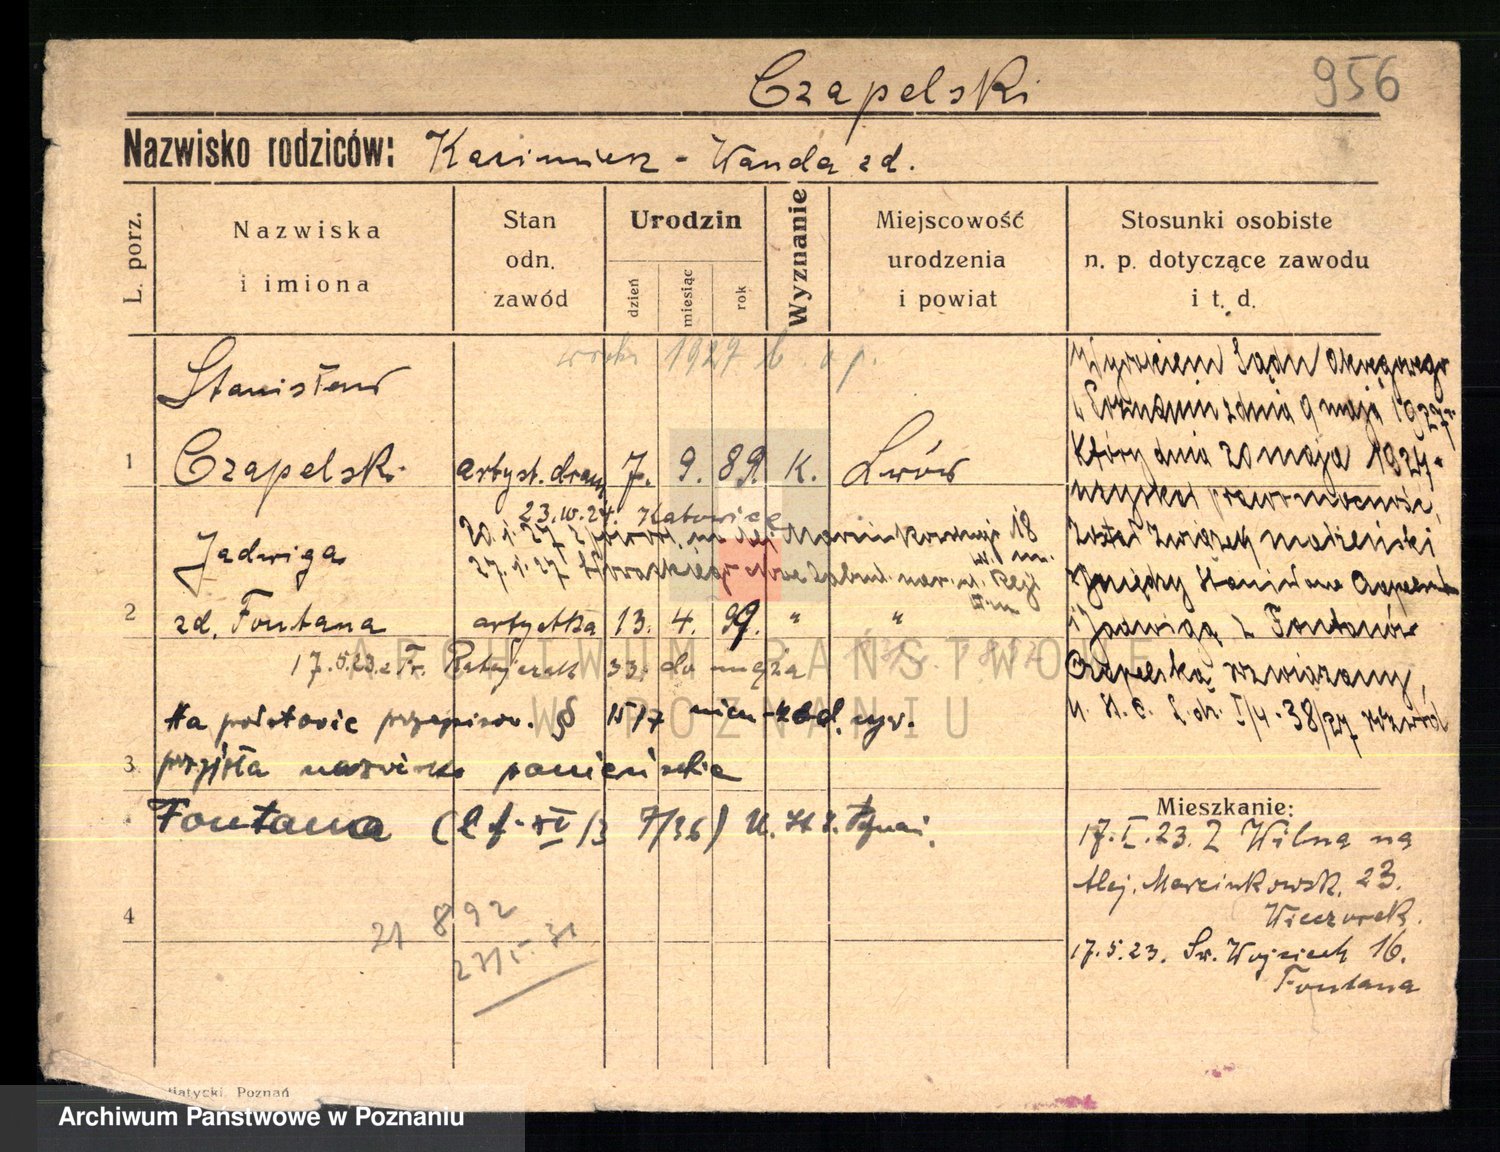 Czapelski
956
Nazwisko rodziców: Kazimierz - Wanda zd.
L. porz.
Nazwiska i imiona
Stan odn. zawód
Urodzin
dzień
miesiąc
rok
Wyznanie
Miejscowość urodzenia i powiat
Stosunki osobiste n. p. dotyczące zawodu i t. d.
1927
Stanisław
1 Czapelski artyst. dram. 7. 9. 89. K. Lwów
23. 24. Katowice
20.1.27 Marcinkowskiego 18
27.1.27
Jadwiga
2 zd. Fontana artystka 13. 4. 99. " "
17.5.23. Fr. Ratajczak 33. do męża
Na podstawie przepisów. § 1517 niem. kod. cyw.
3 przyjęła nazwisko panieńskie
Fontana
4
21 892
31
Wyrokiem Sądu Okręgowego
w Poznaniu z dnia 9 maja 1927 r.
który dnia 20 maja 1927.
uzyskał prawomocność,
został związek małżeński
między Stanisławem Czapelskim
i Jadwigą z Fontanów
Czapelską rozwiązany,
38/27 rozwód
Mieszkanie:
17.I.23. Z Wilna na
Alej. Marcinkowsk. 23.
Wieczorek.
17.5.23. Św. Wojciech 16.
Fontana
ARCHIWUM PAŃSTWOWE
W POZNANIU
Poznań
Archiwum Państwowe w Poznaniu